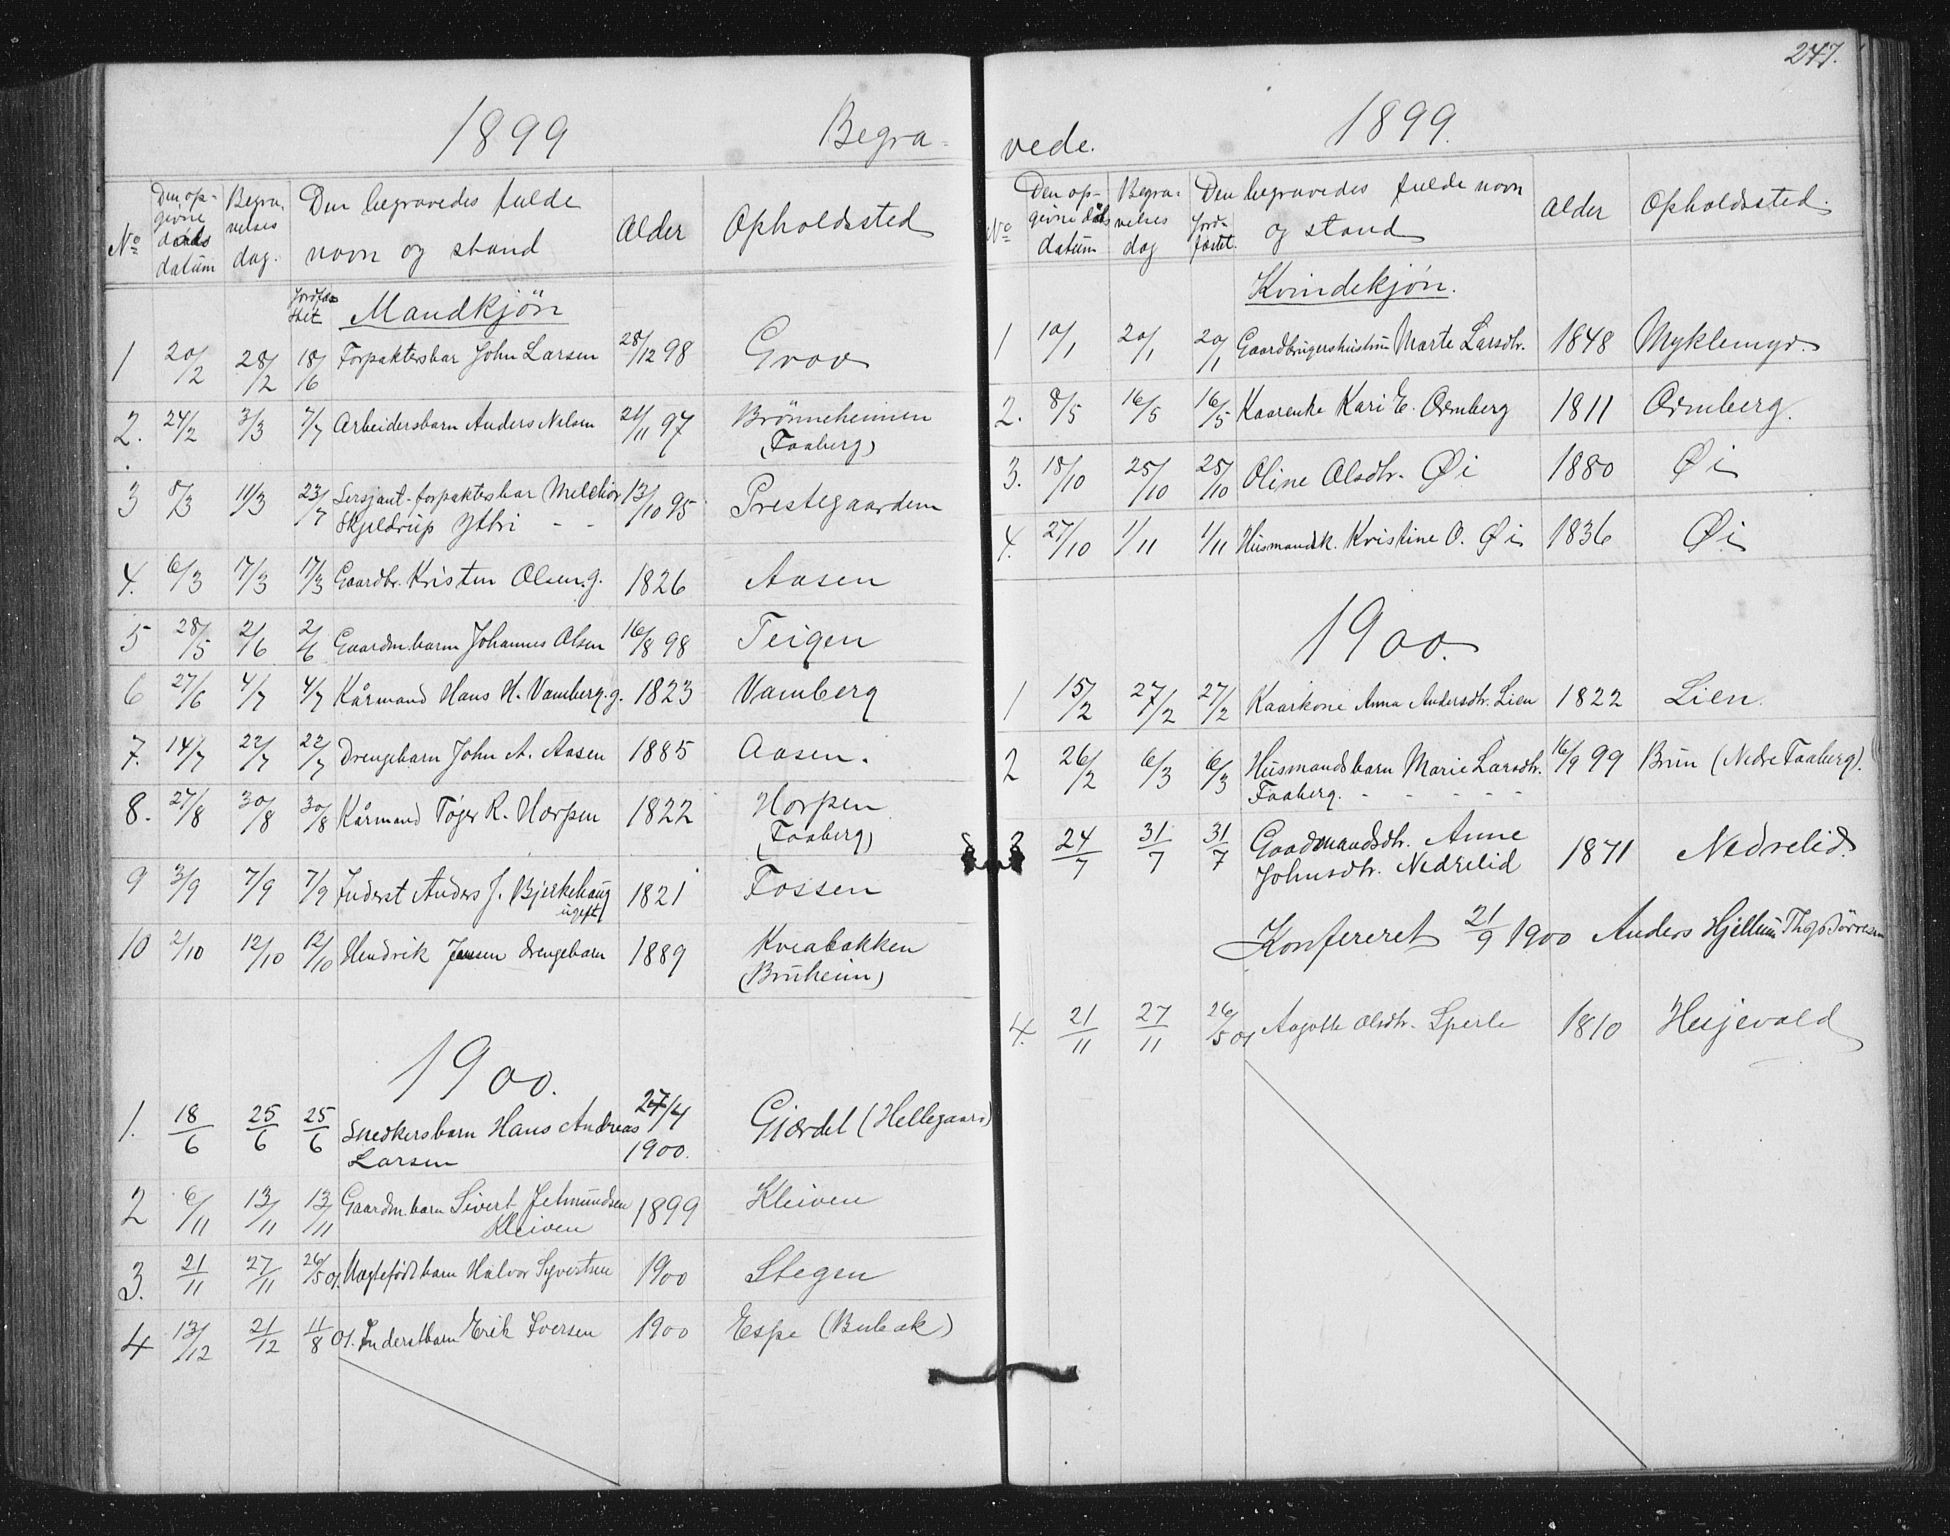 1899 Begra-
No Den op- givne døds datum Begra- velses dag. Den begravedes fulde navn og stand Alder Opholdssted
Jordfæ- stet Mandkjön
1 20/2 28/2 18/6 Forpaktersbar John Larsen 28/12 98 Grov
2. 24/2 3/3 7/7 Arbeidersbarn Anders Nilsen 21/11 97 Brönneheimen
(Faaberg)
3 8/3 11/3 23/7 Sersjant-forpaktersbar Melchior 13/10 95 Prestegaarden
Skjeldrup Ythri - -
4. 6/3 17/3 17/3 Gaardbr. Kristen Olsen. g. 1826 Aasen
5 28/5 2/6 2/6 Gaardm.barn Johannes Olsen 16/8 98 Teigen
6 27/6 4/7 4/7 Kårmand Hans H. Vamberg. g. 1823 Vamberg
7. 14/7 22/7 22/7 Drengebarn John A. Aasen 1885 Aasen.
8. 27/8 30/8 30/8 Kårmand Töger R. Horpen 1822 Horpen
(Faaberg)
9 3/9 7/9 7/9 Inderst Anders J. Bjerkehaug 1821 Fossen
ugift
10 2/10 12/10 12/10 Hendrik Jensen drengebarn 1889 Kveabakken
(Bruheim)
1900.
1. 18/6 25/6 25/6 Snedkersbarn Hans Andreas 27/4 Gjærdet (Hellegaard)
Larsen 1900.
2 6/11 13/11 13/11 Gaardm barn Sivert Jetmundsen 1899 Kleiven
Kleiven
3. 21/11 27/11 26/5 01. Uægtefødt barn Halvor Syvertsen 1900 Stegen
4 13/12 21/12 11/8 01. Inderstbarn Erik Iversen 1900 Espe (Bubak)
247.
vede. 1899.
No Den op- givne døds datum Begra- velses dag Jord- fæstet. Den begravedes fulde navn og stand Alder Opholdssted.
Kvindekjøn.
1 10/1 20/1 20/1 Gaardbrugershustru Marte Larsdtr. 1848 Myklemyr.
2. 8/5 16/5 16/5 Kaarenke Kari E. Ormberg 1811 Ormberg.
3. 18/10 25/10 25/10 Oline Olsdtr. Øi 1880 Øi
4. 27/10 1/11 1/11 Husmandsk. Kristine O. Øi 1836 Øi
1900.
1 15/2 27/2 27/2 Kaarkone Anna Andersdtr. Lien 1822 Lien.
2 26/2 6/3 6/3 Husmandsbarn Marie Larsdtr. 16/9 99 Brun (Nedre Faaberg).
Faaberg. - - - - -
3 24/7 31/7 31/7 Gaadmandsdtr. Anne 1871 Nedrelid.
Johnsdtr. Nedrelid
Konfereret 21/9 1900 Anders Hjellum Ths
4. 21/11 27/11 26/5 01 Aagotte Olsdtr. Sperle 1810 Hesjevold